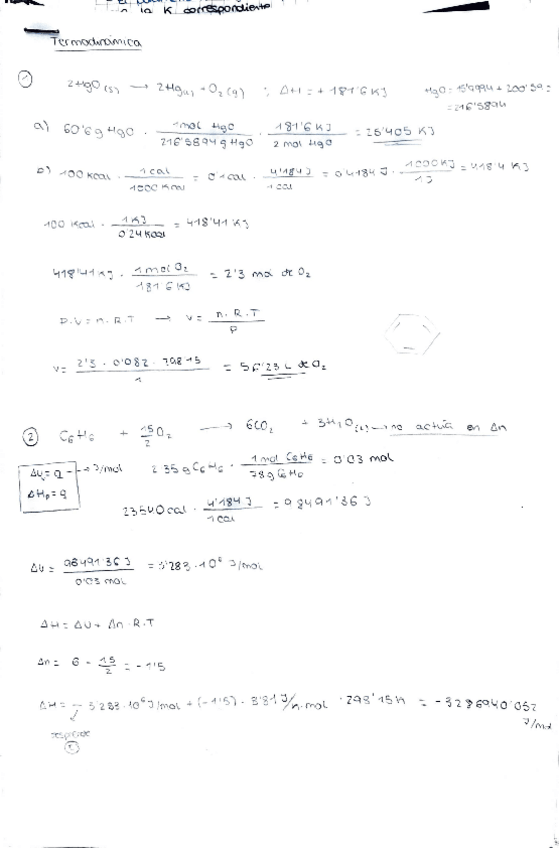 a la K correspondiente
Termodinámica
① 2HgO(s) → 2Hg(l) + O2(g) ; ΔH = + 181'6 KJ HgO = 15'9994 + 200'59 =
= 216'5894
a) 60'6g HgO · 1mol HgO / 216'5894g HgO · 181'6 KJ / 2 mol HgO = 25'405 KJ
b) 100 Kcal · 1 cal / 1000 Kcal = 0'1 cal · 4'184 J / 1 cal = 0'4184 J · 1000 KJ / 1 J = 418'4 KJ
100 Kcal · 1 KJ / 0'24 Kcal = 418'41 KJ
418'41 KJ · 1 mol O2 / 181'6 KJ = 2'3 mol de O2
P.V = n.R.T → V = n.R.T / P
V = 2'3 · 0'082 · 298'15 / 1 = 56'23 L de O2
② C6H6 + 15/2 O2 → 6CO2 + 3H2O(l) → no actúa en Δn
ΔUv = Q → J/mol 2'35g C6H6 · 1 mol C6H6 / 78g C6H6 = 0'03 mol
ΔHp = Q
23540 cal · 4'184 J / 1 cal = 98491'36 J
ΔU = 98491'36 J / 0'03 mol = 3'283 · 10⁶ J/mol
ΔH = ΔU + Δn · R.T
Δn = 6 - 15/2 = -1'5
ΔH = - 3'283 · 10⁶ J/mol + (-1'5) · 8'31 J/K·mol · 298'15 K = -3286940'052 J/mol